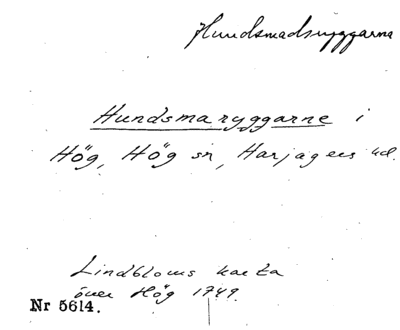 Hundsmadsryggarna
Hundsmaryggarne i
Hög, Hög sn, Harjagers hd.
Lindbloms karta
över Hög 1749.
Nr 5614.